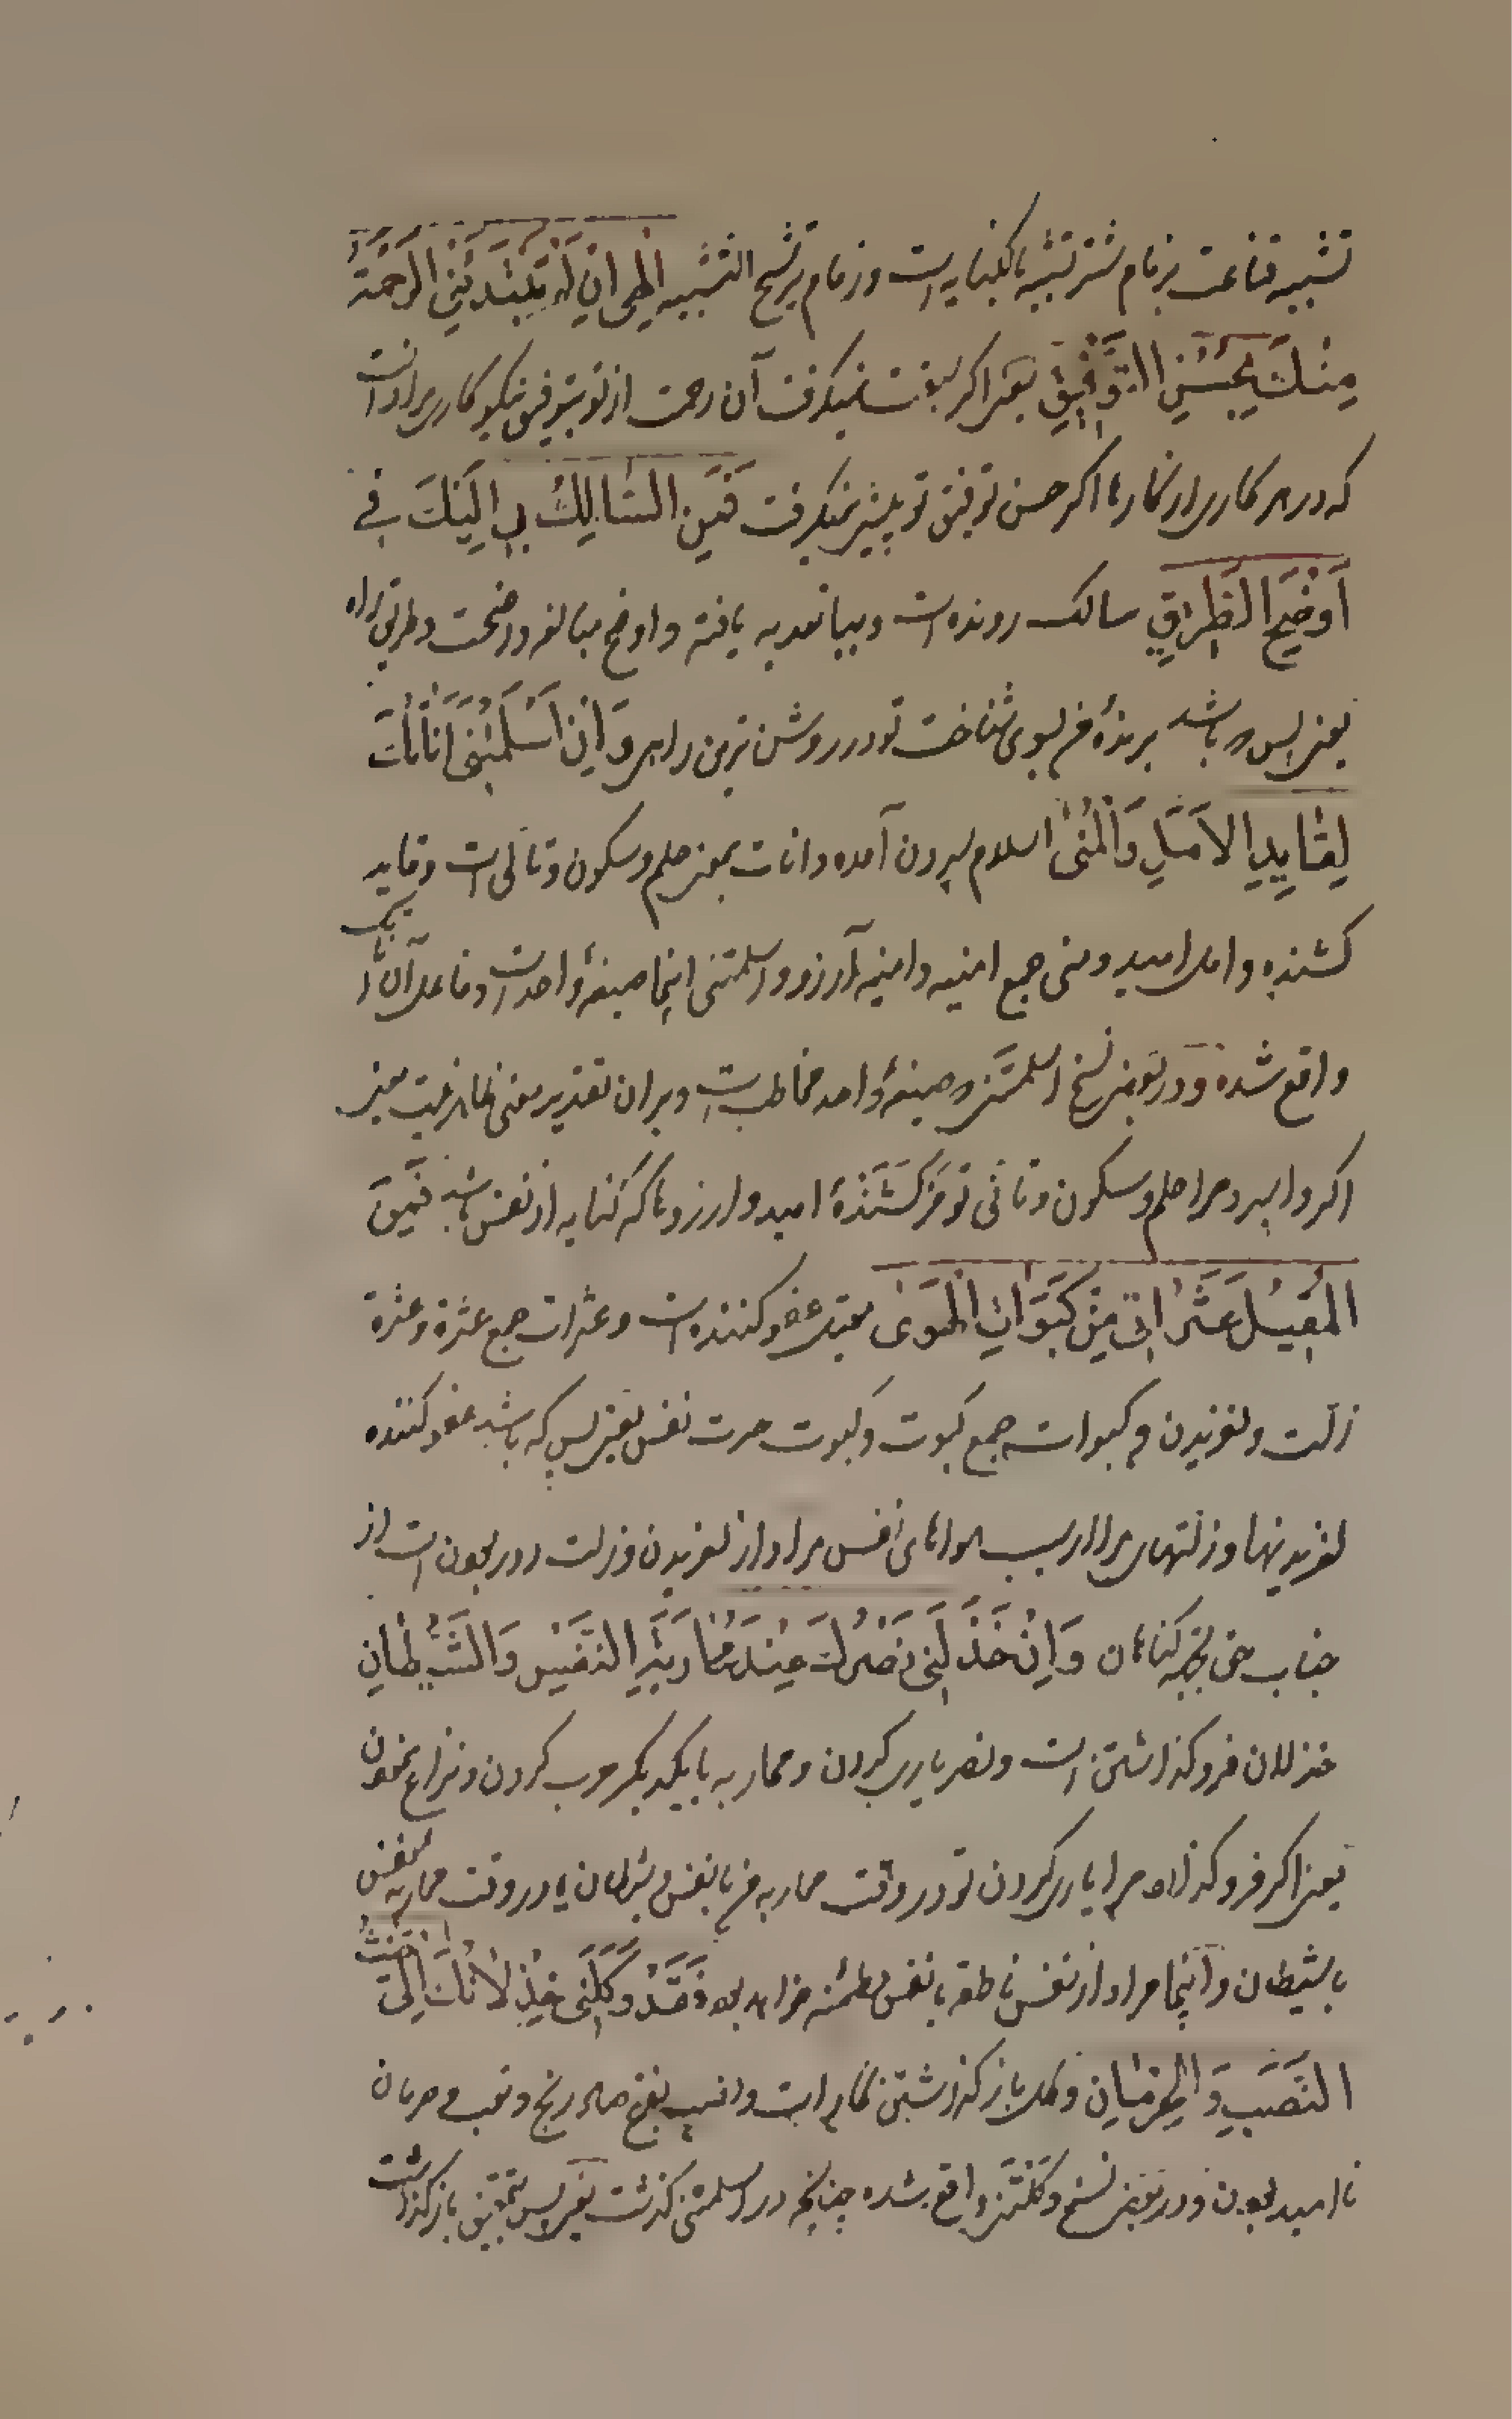 تشبیه قناعت بزمام شتر تشبیه بالکنایه است و زمام ترشیح التشبیه اِلهی اِنْ لَمْ تَبْتَدِئْنِی الرَّحْمَةُ
مِنْكَ بِحُسْنِ التَّوْفِیقِ یعنی اگر سبقت نمیگرفت آن رحمت از تو بتوفیق نیکو کاری مراد آنست
که در هر کاری از کارها اگر حسن توفیق تو پیشی نمیگرفت فَمَنِ السَّالِكُ بِی اِلَیْكَ فِی
اَوْضَحِ الطَّرِیقِ سالک رونده است و ببا تعدیه یافته و اوضح مبالغه در وضحت و طریق راه
یعنی پس که باشد برندهٔ من بسوی شناخت تو در روشن ترین راهی وَاِنْ اَسْلَمَتْنِی اَنَاتُكَ
لِقَایِدِ الاَمَلِ وَالْمُنٰی اسلام سپردن آمده و انات بمعنی حلم و سکون و تأنی است و قاید
کشنده و امل امید و منی جمع امنیه و امنیه آرزو و اسلمتنی اینجا صیغهٔ واحد است و فاعل آن اناتک
واقع شده و در بعضی نسخ اسلمتنی صیغهٔ واحد مخاطب است و بر آن تقدیر معنی ظاهر نیست یعنی
اگر واسپرد مرا حلم و سکون و تأنی تو مر کَشَنْدهٔ امید و ارزوها که کنایه از نفس باشد فَمَنِ
الْمُقِیلُ عَثَرٰاتِی مِنْ کَبَوَاتِ الْهَوٰی مقیل عفو کننده است و عثرات جمع عثرة و عثرة
زلت و لغزیدن و کبوات جمع کبوت و کبوت حرت نفس یعنی پس که باشد عفو کننده
لغزیدنها و زلتهای مرا از سبب هواهای نفس مراد از لغزیدن و زلت دور بودن است از
جناب حق بجهة گناهان وَاِنْ خَذَلَنِی نَصْرُكَ عِنْدَ مُحَارَبَةِ النَّفْسِ وَالشَّیْطَانِ
خذلان فرو گذاشتن است و نصر یاری کردن و محاربه بایکدیگر حرب کردن و نزاع نمودن
یعنی اگر فرو گذارد مرا یاری کردن تو در وقت محاربه من با نفس و شیطان یا در وقت محاربه نفس
با شیطان و اینجا مراد از نفس ناطقه یا نفس مطمئنه خواهد بود فَقَدْ وَکَلَنِی خِذْلاٰنُكَ اِلٰی حَیْثُ
النَّصَبِ وَالْحِرْمَانِ وکل باز گذاشتن کار است و نصب بفتح صاد رنج و تعب و حرمان
ناامید بودن و در بعضی نسخ وکلتنی واقع شده چنانچه در اسلمتنی گذشت یعنی پس بتحقیق باز گذاشت